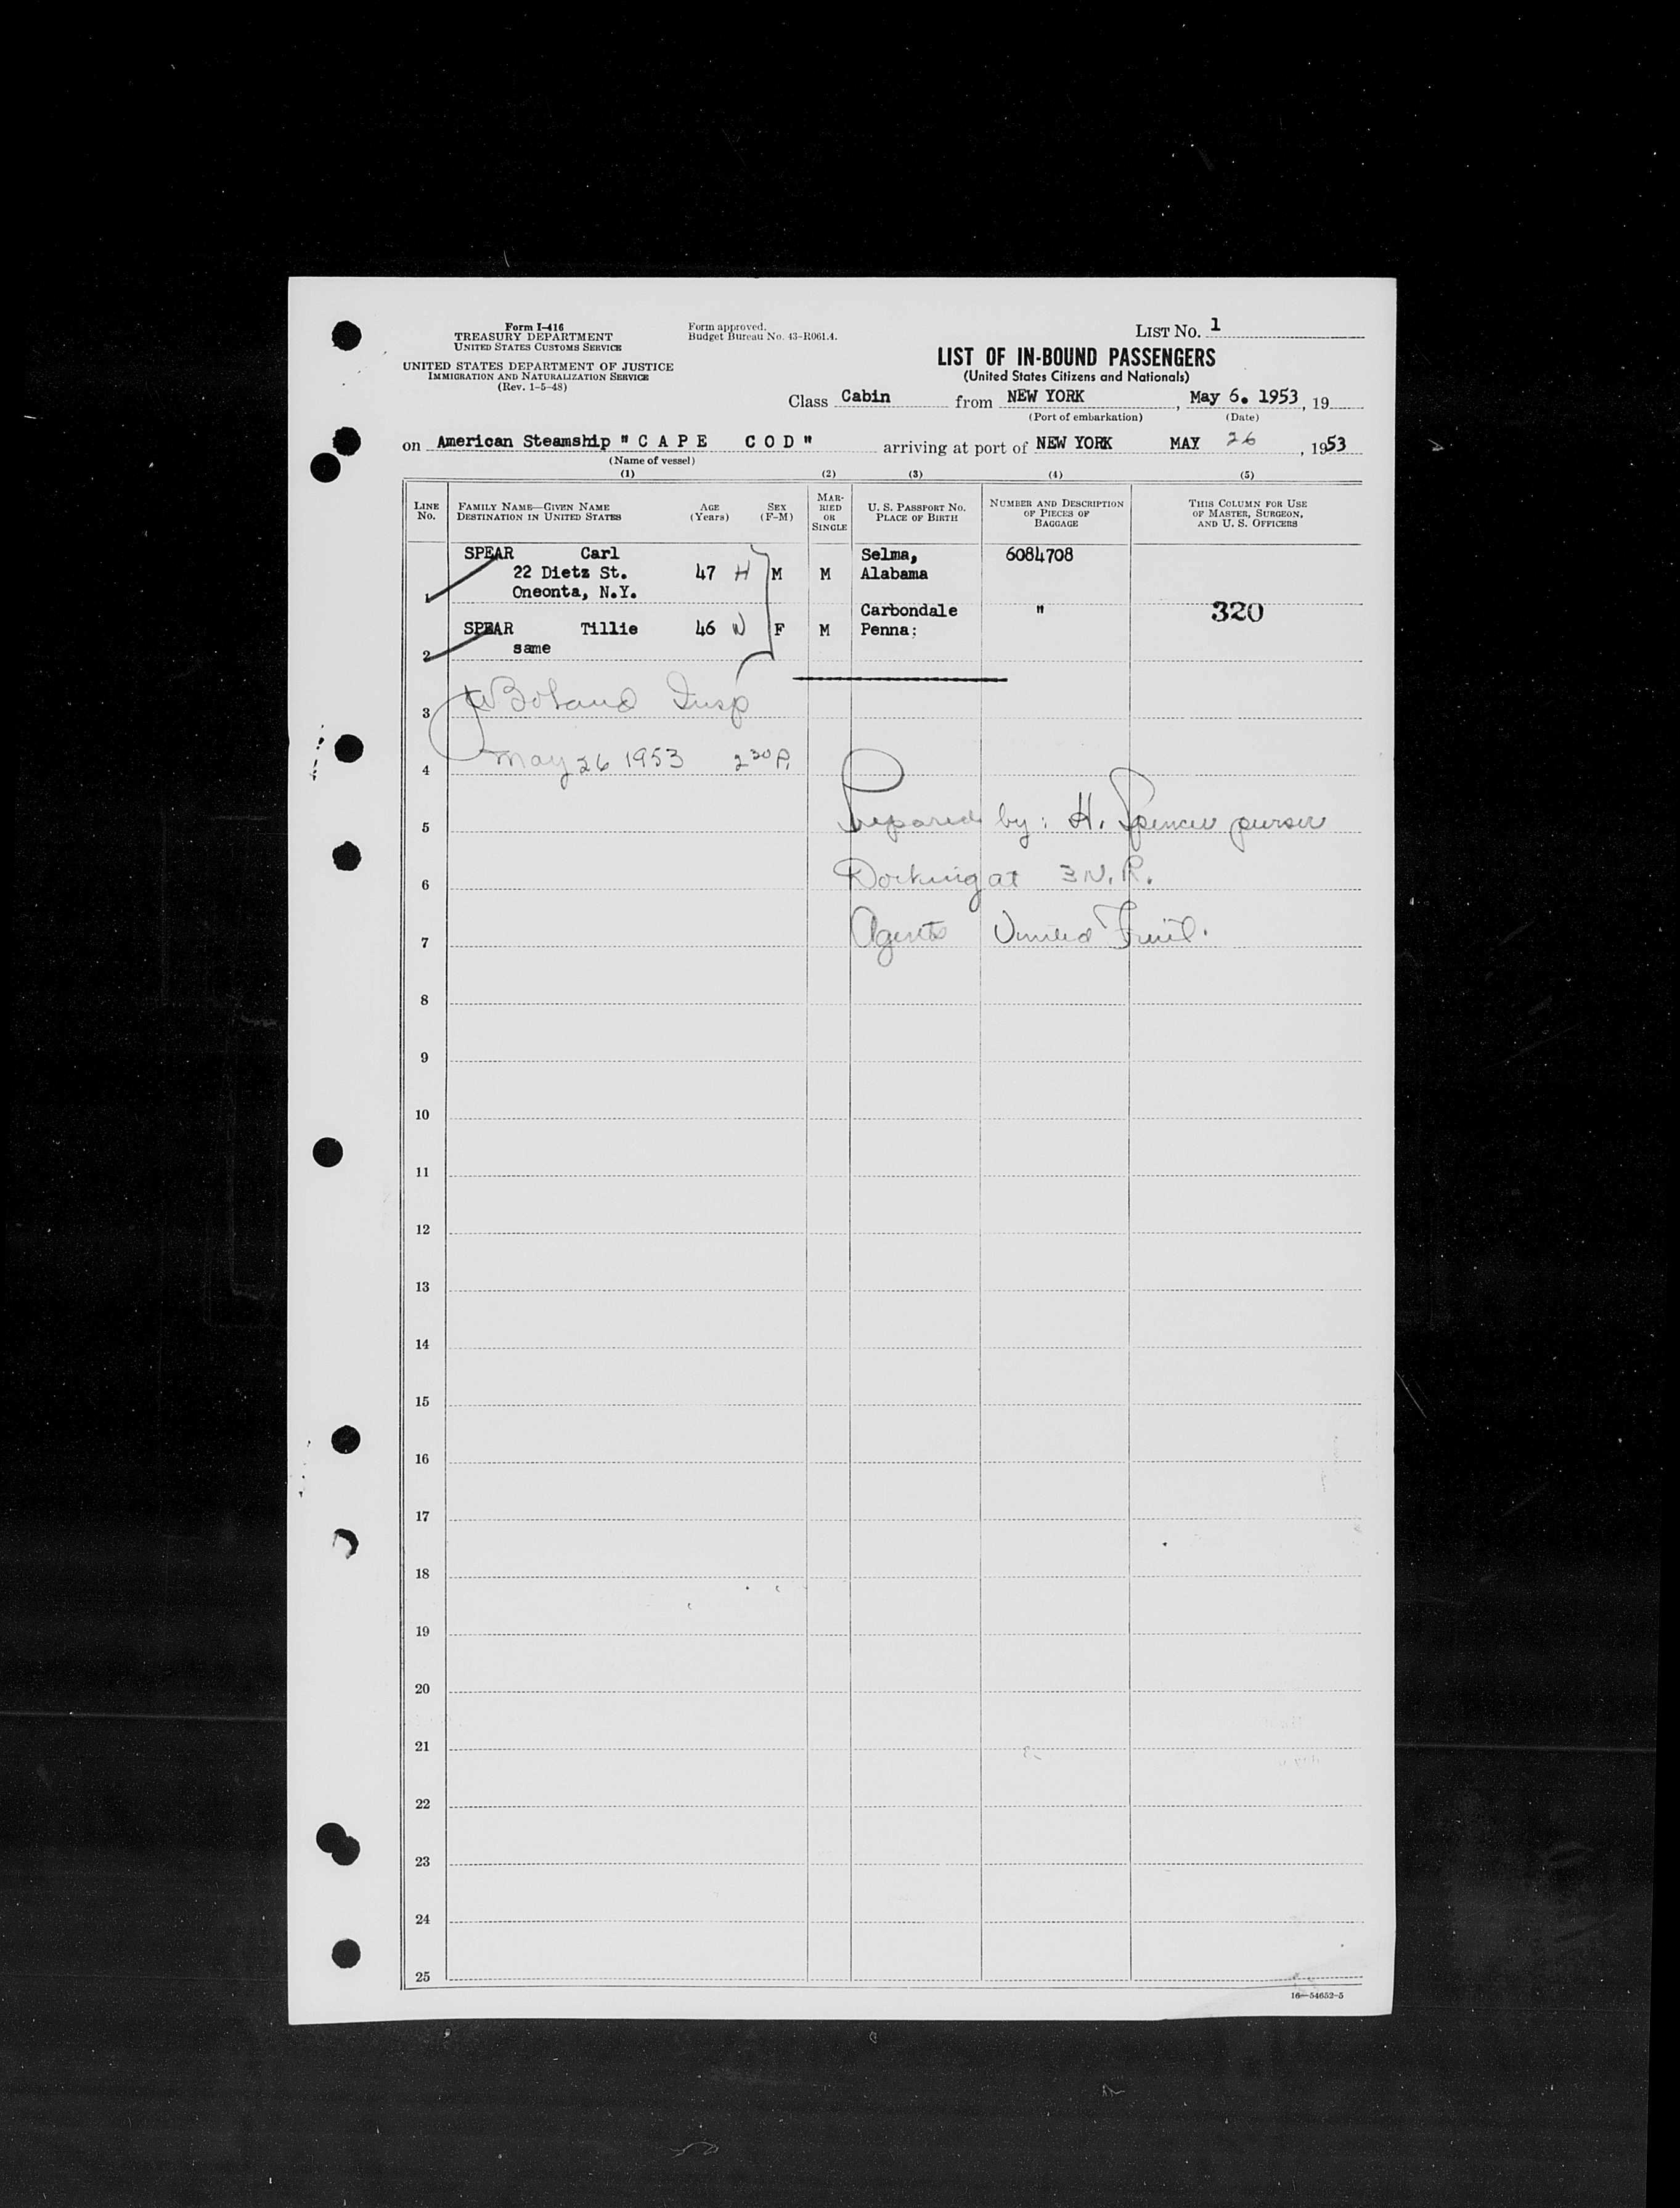 Form I-416
TREASURY DEPARTMENT
UNITED STATES CUSTOMS SERVICE
UNITED STATES DEPARTMENT OF JUSTICE
IMMIGRATION AND NATURALIZATION SERVICE
(Rev. 1-5-48)
Form approved.
Budget Bureau No. 43-R061.4.
LIST No. 1
LIST OF IN-BOUND PASSENGERS
(United States Citizens and Nationals)
Class Cabin from NEW YORK, May 6. 1953, 19
(Port of embarkation) (Date)
on American Steamship "C A P E C O D" arriving at port of NEW YORK MAY 26, 1953
(Name of vessel)
(1) (2) (3) (4) (5)
LINE No.
FAMILY NAME—GIVEN NAME
DESTINATION IN UNITED STATES
AGE (Years)
SEX (F-M)
MARRIED OR SINGLE
U. S. PASSPORT No.
PLACE OF BIRTH
NUMBER AND DESCRIPTION OF PIECES OF BAGGAGE
THIS COLUMN FOR USE OF MASTER, SURGEON, AND U. S. OFFICERS
SPEAR Carl Selma, 6084708
22 Dietz St. 47 H M M Alabama
1 Oneonta, N.Y.
Carbondale " 320
SPEAR Tillie 46 W F M Penna:
2 same
3 Boland Insp
4 May 26 1953 2 30 P.
5 Prepared by: H. Spencer purser
6 Docking at 3 N.R.
7 Agents United Fruit.
8
9
10
11
12
13
14
15
16
17
18
19
20
21
22
23
24
25
16—54652-5